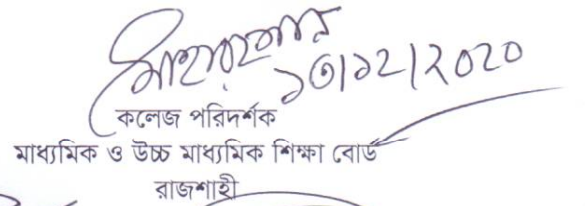 ১৩/১২/২০২০
কলেজ পরিদর্শক
মাধ্যমিক ও উচ্চ মাধ্যমিক শিক্ষা বোর্ড
রাজশাহী